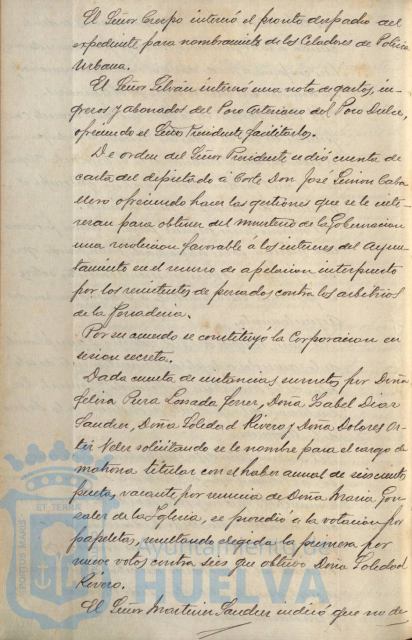 El Señor Crespo interesó el pronto despacho del
expediente para nombramiento de los Celadores de Policia
Urbana.
El Señor Galván interesó una nota de gastos, in-
gresos y abonados del Pozo Arteriano del Pozo Dulce,
ofreciendo el Señor Presidente facilitarlos.
De orden del Señor Presidente se dió cuenta de
carta del diputado á Corte Don José Limon Caba
llero ofreciendo hacer las gestiones que se le inte-
resan para obtener del ministerio de la Gobernacion
una resolucion favorable á los intereses del Ayun-
tamiento en el recurso de apelacion interpuesto
por los remitentes de pescados contra los arbitrios
de la Pescaderia.
Por su acuerdo se constituyó la Corporacion en
sesion secreta.
Dada cuenta de instancias suscritas por Doña
Felisa Pura Losada Ferrer, Doña Isabel Diaz
Sanchez, Doña Soledad Rivero y Doña Dolores Or-
tiz Velez solicitando se le nombre para el cargo de
matrona titular con el haber anual de seiscientas
pesetas, vacante por renuncia de Doña Maria Gon-
zalez de la Iglesia, se procedió a la votación por
papeletas, resultando elegida la primera por
nueve votos contra seis que obtuvo Doña Soledad
Rivero.
El Señor Martinez Sanchez indicó que no de-
PORTUS MARIS
ET TERRAE
Ayuntamiento de
HUELVA